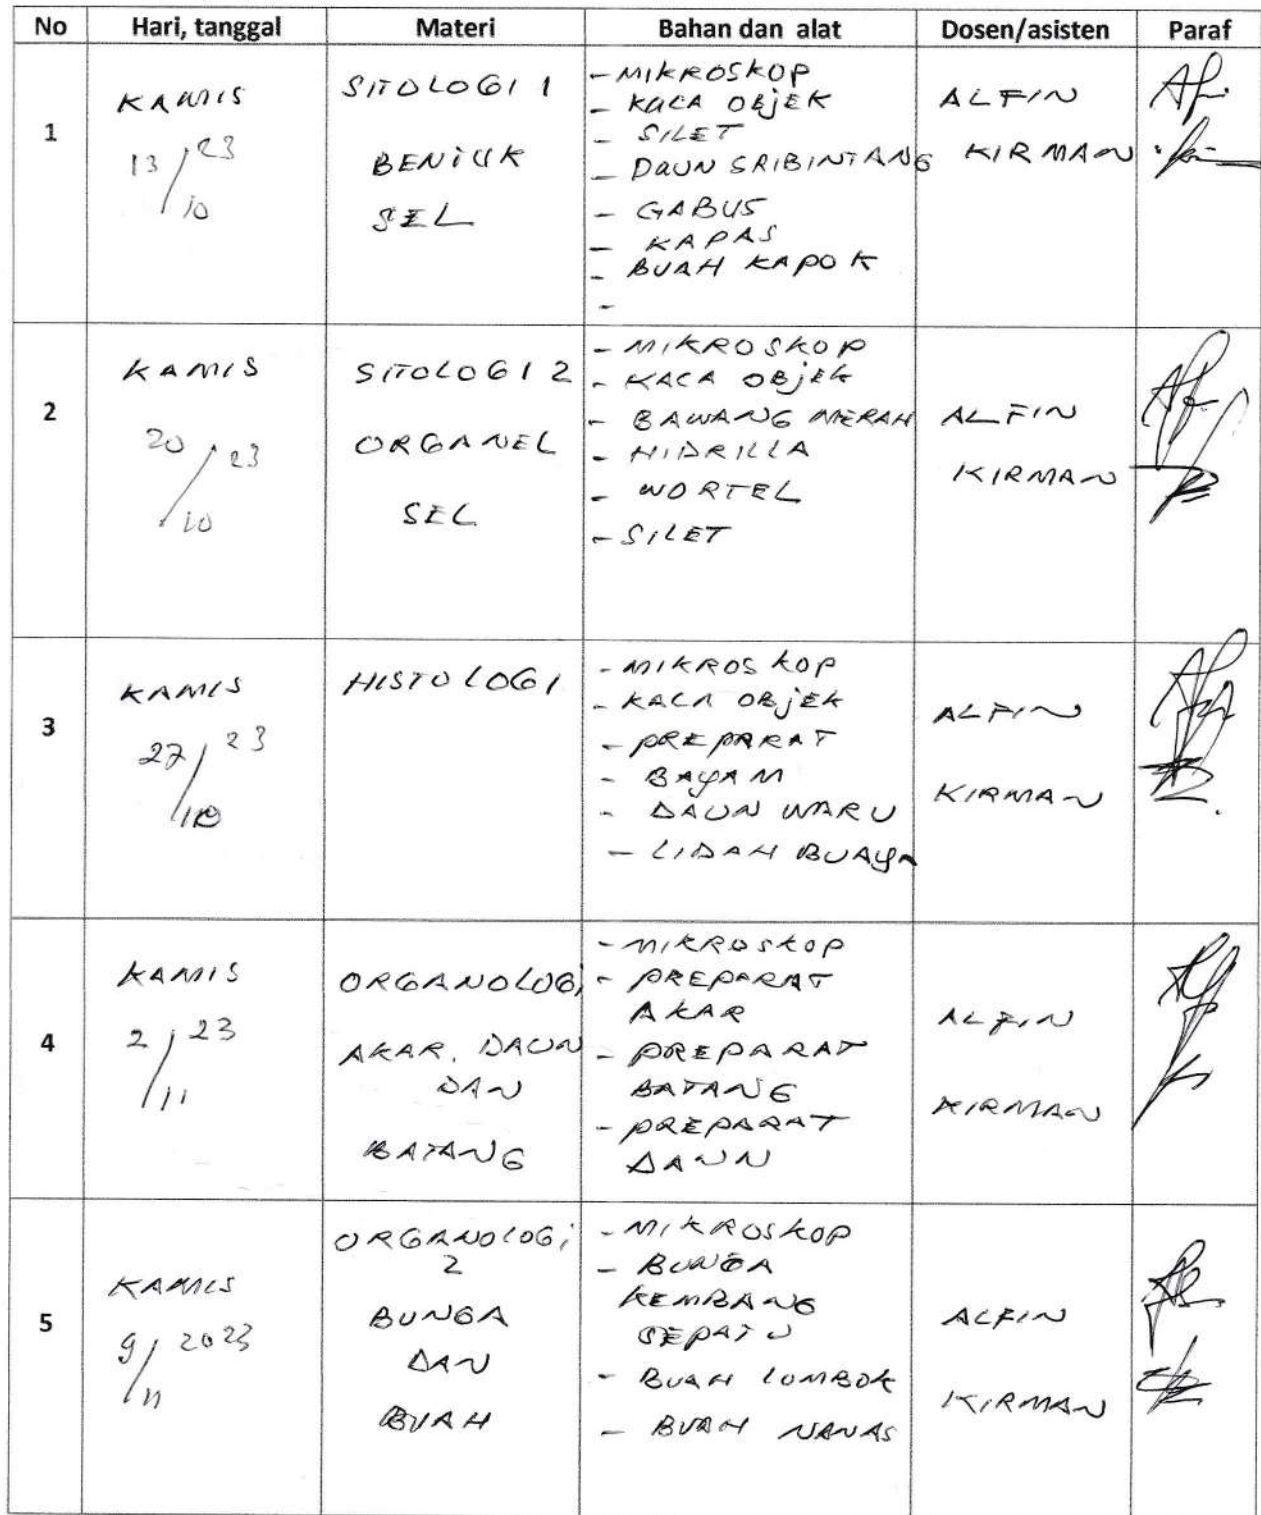 No Hari, tanggal Materi Bahan dan alat Dosen/asisten Paraf
1
KAMIS
13/10 23
SITOLOGI 1
BENTUK
SEL
- MIKROSKOP
- KACA OBJEK
- SILET
- DAUN SRIBINTANG
- GABUS
- KAPAS
- BUAH KAPOK
-
ALFIN
KIRMAN
2
KAMIS
20/10 23
SITOLOGI 2
ORGANEL
SEL
- MIKROSKOP
- KACA OBJEK
- BAWANG MERAH
- HIDRILLA
- WORTEL
- SILET
ALFIN
KIRMAN
3
KAMIS
27/10 23
HISTOLOGI
- MIKROSKOP
- KACA OBJEK
- PREPARAT
- BAYAM
- DAUN WARU
- LIDAH BUAYA
ALFIN
KIRMAN
4
KAMIS
2/11 23
ORGANOLOGI
AKAR, DAUN
DAN
BATANG
- MIKROSKOP
- PREPARAT
AKAR
- PREPARAT
BATANG
- PREPARAT
DAUN
ALFIN
KIRMAN
5
KAMIS
9/11 2023
ORGANOLOGI
2
BUNGA
DAN
BUAH
- MIKROSKOP
- BUNGA
KEMBANG
SEPATU
- BUAH LOMBOK
- BUAH NANAS
ALFIN
KIRMAN